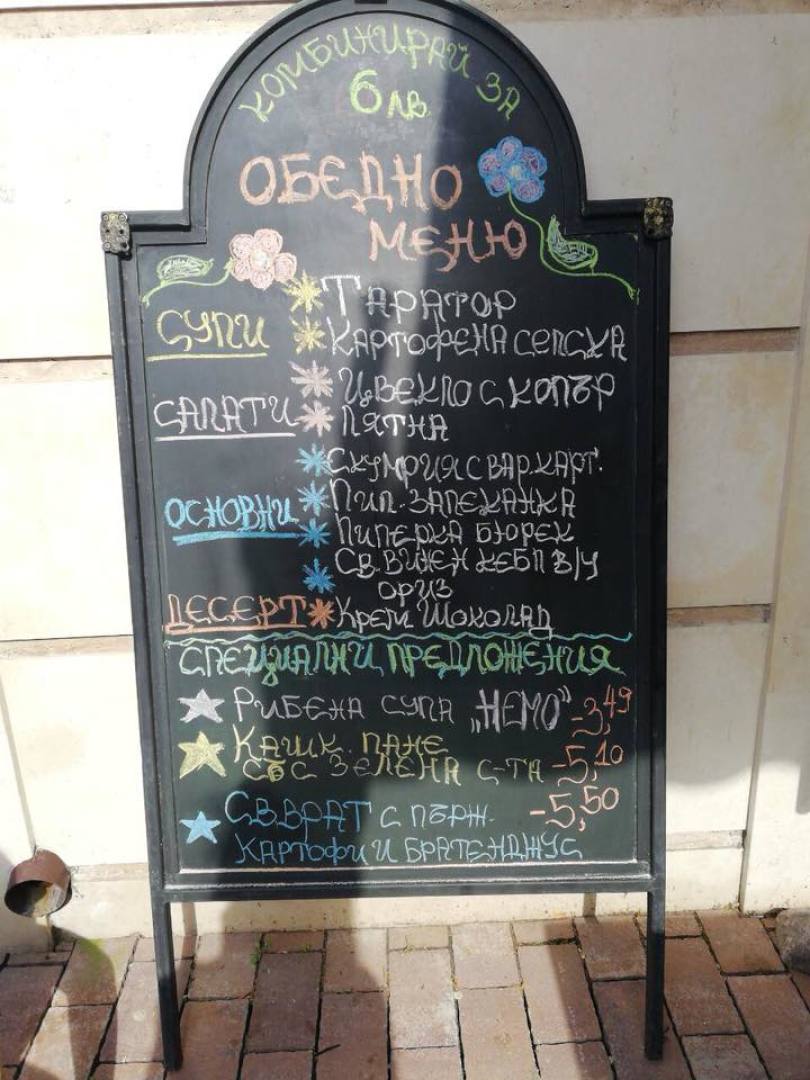 КОМБИНИРАЙ ЗА
6 лв.
ОБЕДНО
МЕНЮ
СУПИ
ТАРАТОР
КАРТОФЕНА СЕЛСКА
САЛАТИ
ЦВЕКЛО С КОПЪР
ЛЯТНА
ОСНОВНИ
СКУМРИЯ С ВАР. КАРТ.
ПИЛ. ЗАПЕКАНКА
ПИПЕРКА БЮРЕК
СВ. ВИЕН КЕБП В/У
ОРИЗ
ДЕСЕРТ
КРЕМ ШОКОЛАД
СПЕЦИАЛНИ ПРЕДЛОЖЕНИЯ
РИБЕНА СУПА „НЕМО" -3,49
КАШК. ПАНЕ
СЪС ЗЕЛЕНА С-ТА -5,10
СВ. ВРАТ С ПЪРЖ. -5,50
КАРТОФИ И БРАТЕНДЖУС